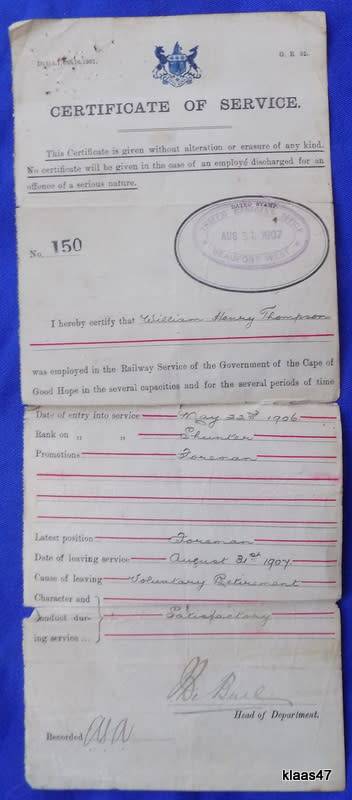 G. R. 92.
CERTIFICATE OF SERVICE.
This Certificate is given without alteration or erasure of any kind.
No certificate will be given in the case of an employé discharged for an
offence of a serious nature.
DATED STAMP
No. 150
AUG 31 1907
BEAUFORT WEST
I hereby certify that William Henry Thompson
was employed in the Railway Service of the Government of the Cape of
Good Hope in the several capacities and for the several periods of time
Date of entry into service May 22nd 1906
Rank on „ „ Shunter
Promotions Foreman
Latest position Foreman
Date of leaving service August 31st 1907.
Cause of leaving Voluntary Retirement
Character and
conduct dur- Satisfactory
ing service ...
Head of Department.
Recorded
klaas47